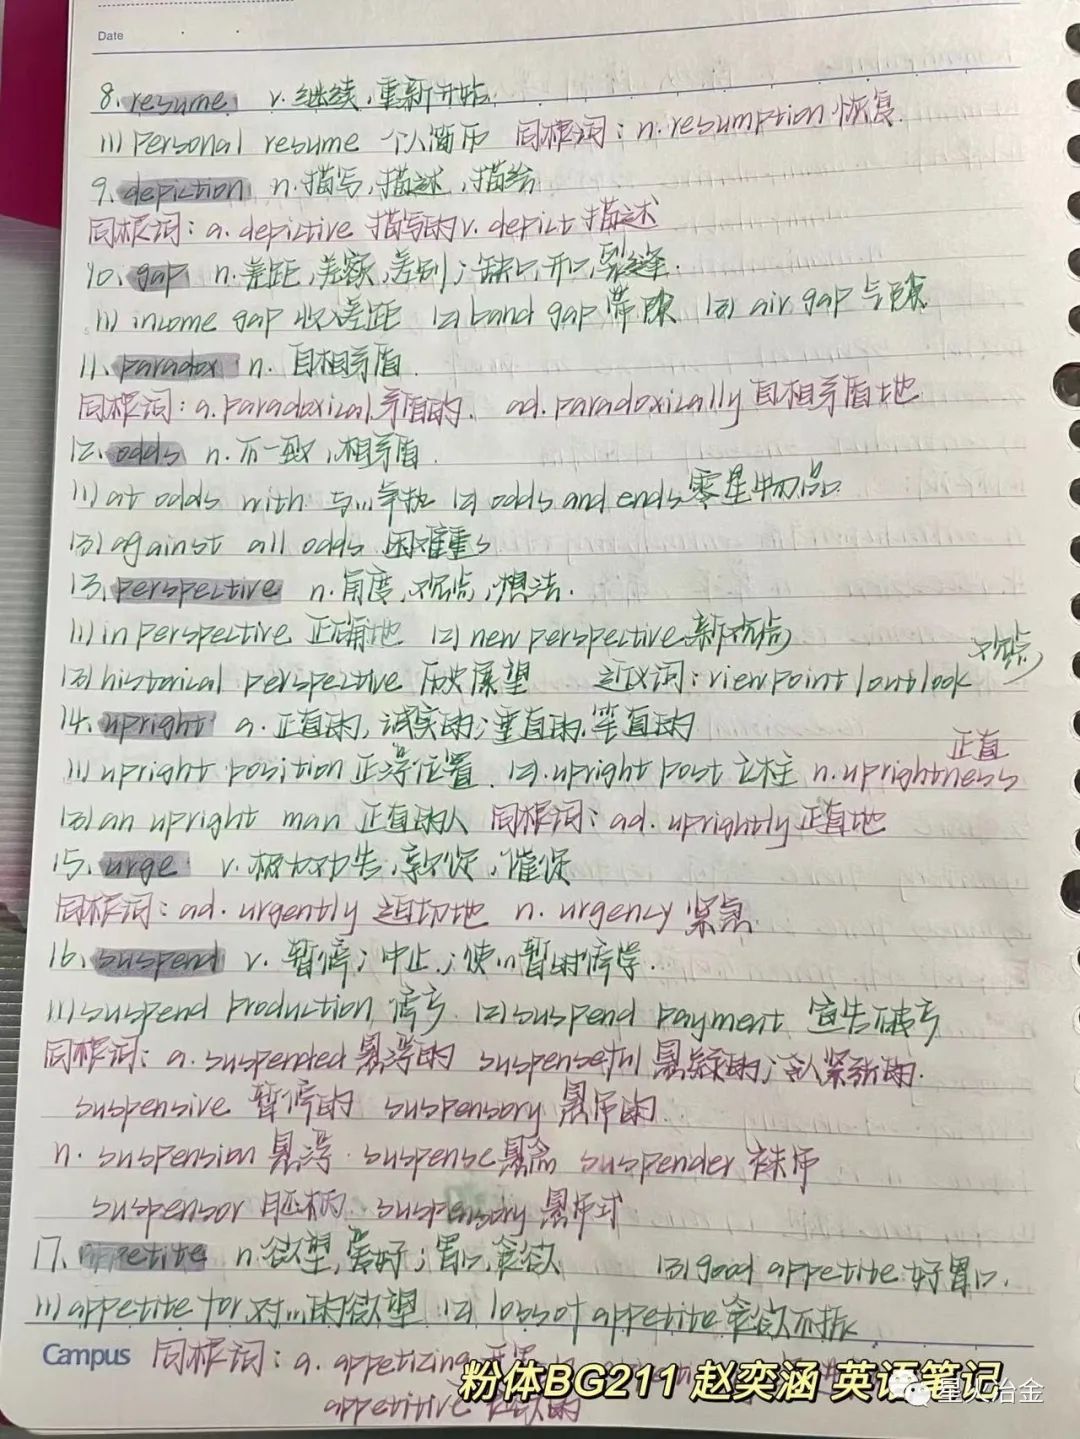 Date
8. resume v. 继续,重新开始
(1) Personal resume 个人简历 同根词: n. resumption 恢复.
9. depiction n. 描写,描述,描绘
同根词: a. depictive 描写的 v. depict 描述
10. gap n. 差距,差额,差别;缺口,开口,裂缝.
(1) income gap 收入差距 (2) band gap 带隙 (3) air gap 气隙
11. paradox n. 自相矛盾.
同根词: a. paradoxical 矛盾的. ad. paradoxically 自相矛盾地
12. odds n. 不一致,相矛盾.
(1) at odds with 与...争执 (2) odds and ends 零星物品
(3) against all odds 困难重重
13. perspective n. 角度,观点,想法.
(1) in perspective 正确地 (2) new perspective 新观点
(3) historical perspective 历史展望 近义词: viewpoint/outlook 观点
14. upright a. 正直的,诚实的;垂直的,笔直的
(1) upright position 正浮位置 (2) upright post 立柱 n. uprightness 正直
(3) an upright man 正直的人 同根词: ad. uprightly 正直地
15. urge v. 极力劝告,敦促,催促
同根词: ad. urgently 迫切地 n. urgency 紧急
16. suspend v. 暂停;中止;使...暂时停学.
(1) suspend production 停产 (2) suspend payment 宣告破产
同根词: a. suspended 悬浮的 suspenseful 悬疑的;令人紧张的.
suspensive 暂停的 suspensory 悬吊的
n. suspension 悬浮. suspense 悬念 suspender 袜吊
suspensor 胚柄. suspensory 悬吊式
17. appetite n. 欲望,爱好;胃口,食欲 (3) good appetite 好胃口.
(1) appetite for 对...的欲望 (2) loss of appetite 食欲不振
Campus 同根词: a. appetizing
appetitive 食欲的
粉体BG211 赵奕涵 英语笔记
星火冶金